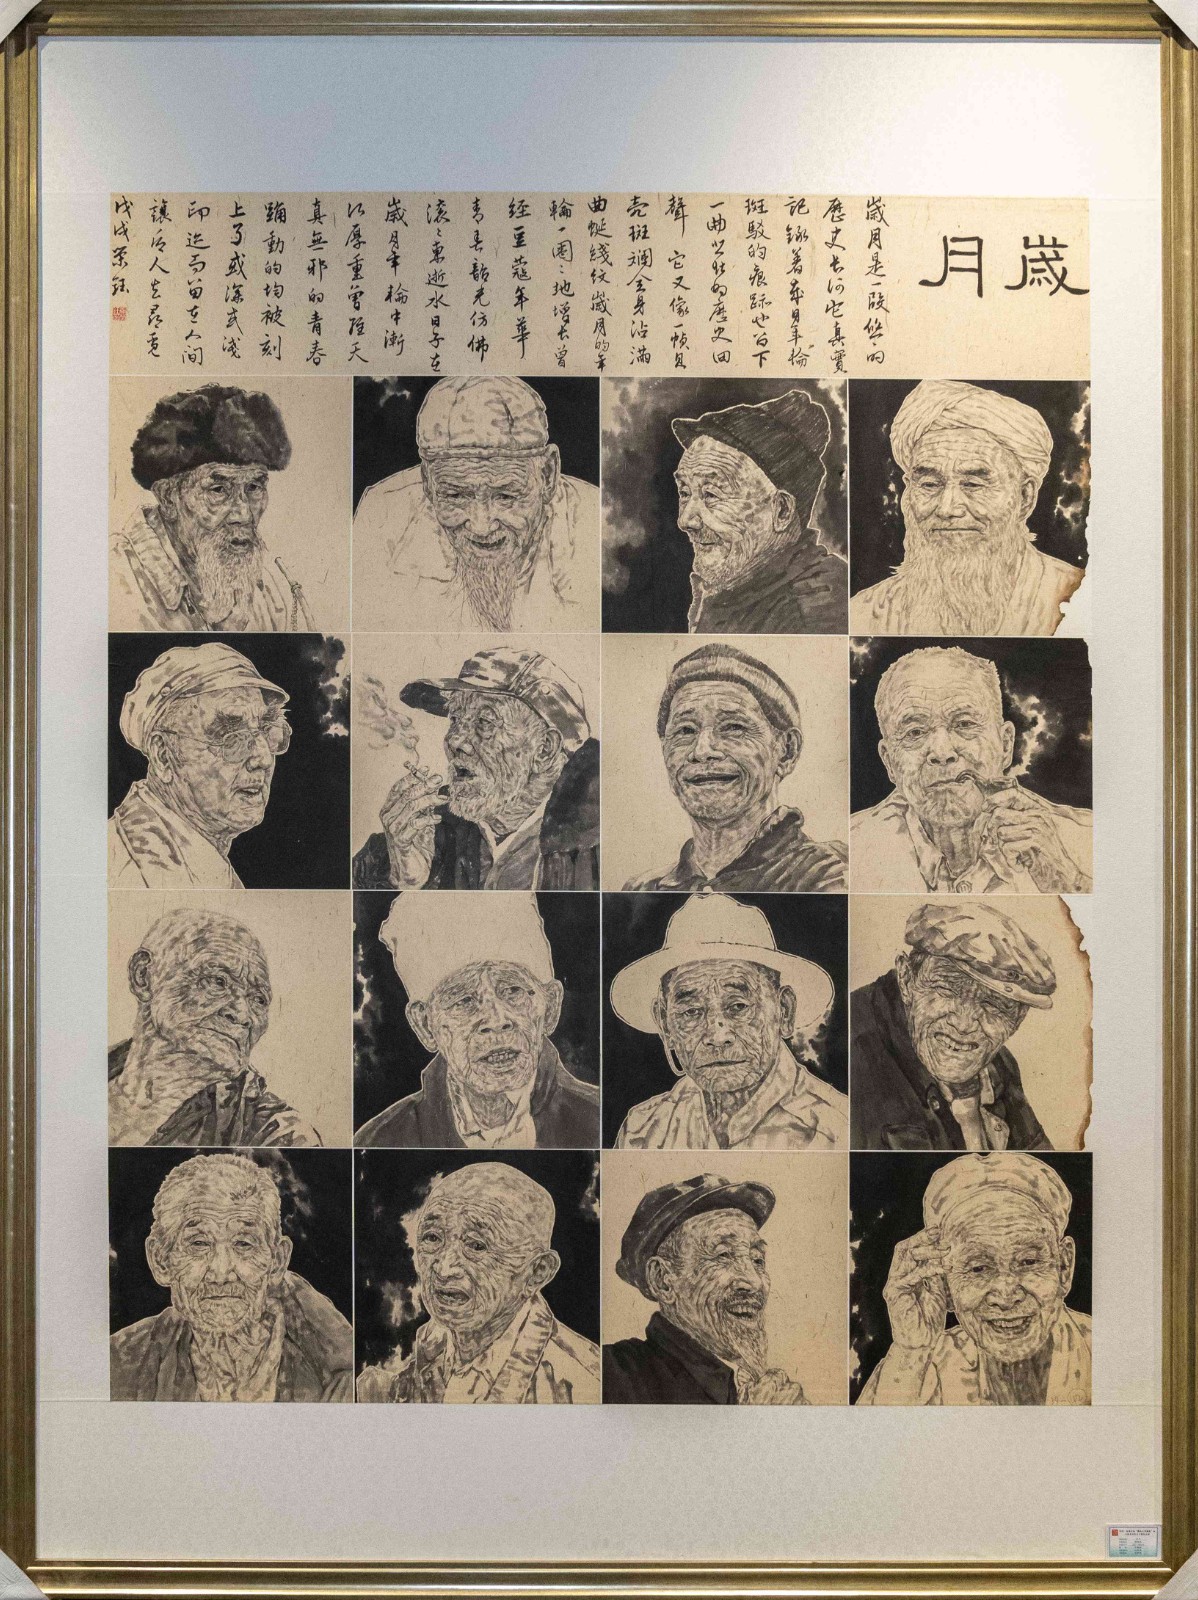 歲月
歲月是一段悠悠的
歷史長河它真實
記錄着歲月年輪
斑駁的痕跡也留下
一曲悲壯的歷史回
聲 它又像一幀貝
壳斑斕全身沾滿
曲蜒綫紋歲月的年
輪一圈二地增长曾
經豆蔻年華
青春韶光仿佛
滚二東逝水日子在
歲月年輪中漸
沉厚重曾經天
真無邪的青春
踊動的均被刻
上了或深或浅
印迹而留在人間
讓後人去尋覓
戊戌